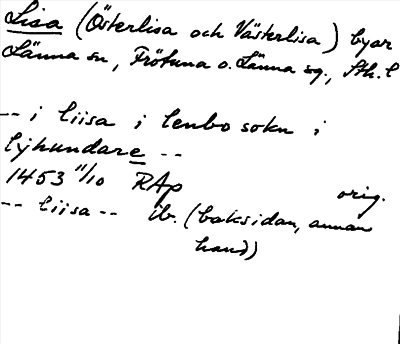 Lisa (Österlisa och Västerlisa) byar
Länna sn, Frötuna o. Länna sg., Sth. l
-- i liisa i lenbo sokn i
lyhundare --
1453 11/10 RAp orig.
-- liisa -- ib. (baksidan, annan
hand)